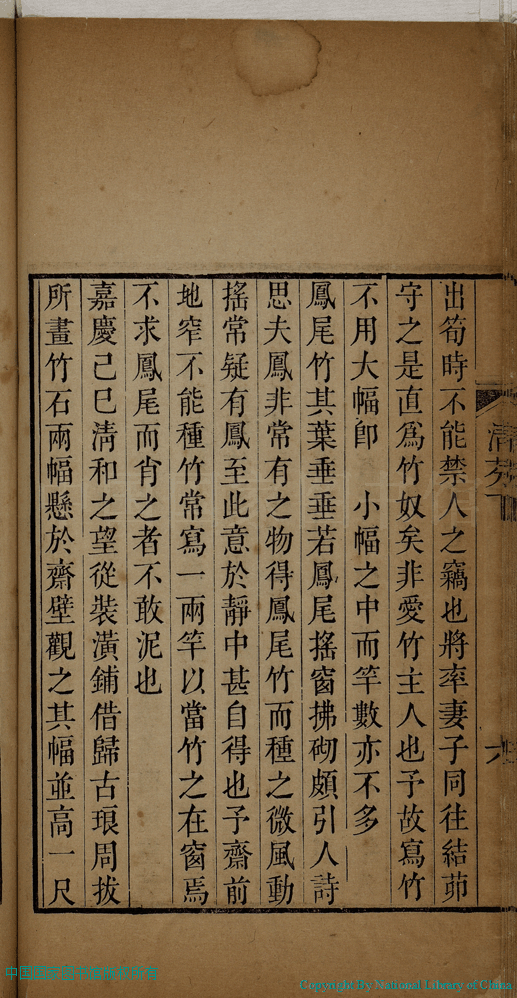 出筍時不能禁人之竊也將率妻子同往結茆
守之是直爲竹奴矣非愛竹主人也予故寫竹
不用大幅卽　小幅之中而竿數亦不多
鳳尾竹其葉垂垂若鳳尾搖窗拂砌頗引人詩
思夫鳳非常有之物得鳳尾竹而種之微風動
搖常疑有鳳至此意於靜中甚自得也予齋前
地窄不能種竹常寫一兩竿以當竹之在窗焉
不求鳳尾而肖之者不敢泥也
嘉慶己巳淸和之望從裝潢鋪借歸古琅周拔
所畫竹石兩幅懸於齋壁觀之其幅並高一尺
Copyright By National Library of China